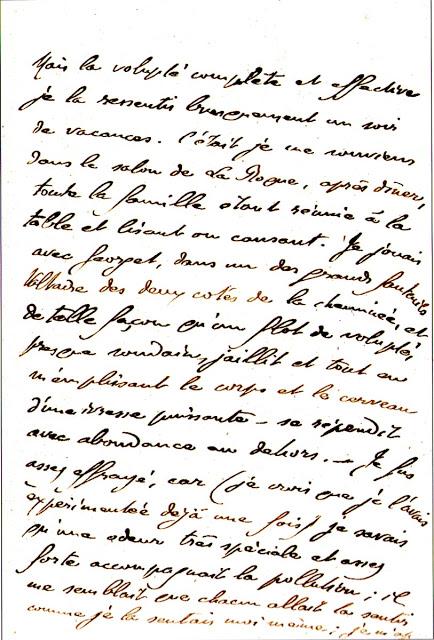 Mais la volupté complète et effective
je la ressentis brusquement un soir
de vacances. C'était je me souviens
dans le salon de La Roque, après dîner,
toute la famille étant réunie à la
table et lisant ou causant. Je jouais
avec Georget, dans un des grands fauteuils
Voltaire des deux cotés de la cheminée, et
de telle façon qu'un flot de volupté,
presque soudain, jaillit et tout en
m'emplissant le corps et le cerveau
d'une ivresse puissante – se répandit
avec abondance au dehors. – Je fus
assez effrayé, car (je crois que je l'avais
expérimentée déjà une fois) je savais
qu'une odeur très spéciale et assez
forte accompagnait la pollution ; il
me semblait que chacun allait la sentir
comme je la sentais moi même ;